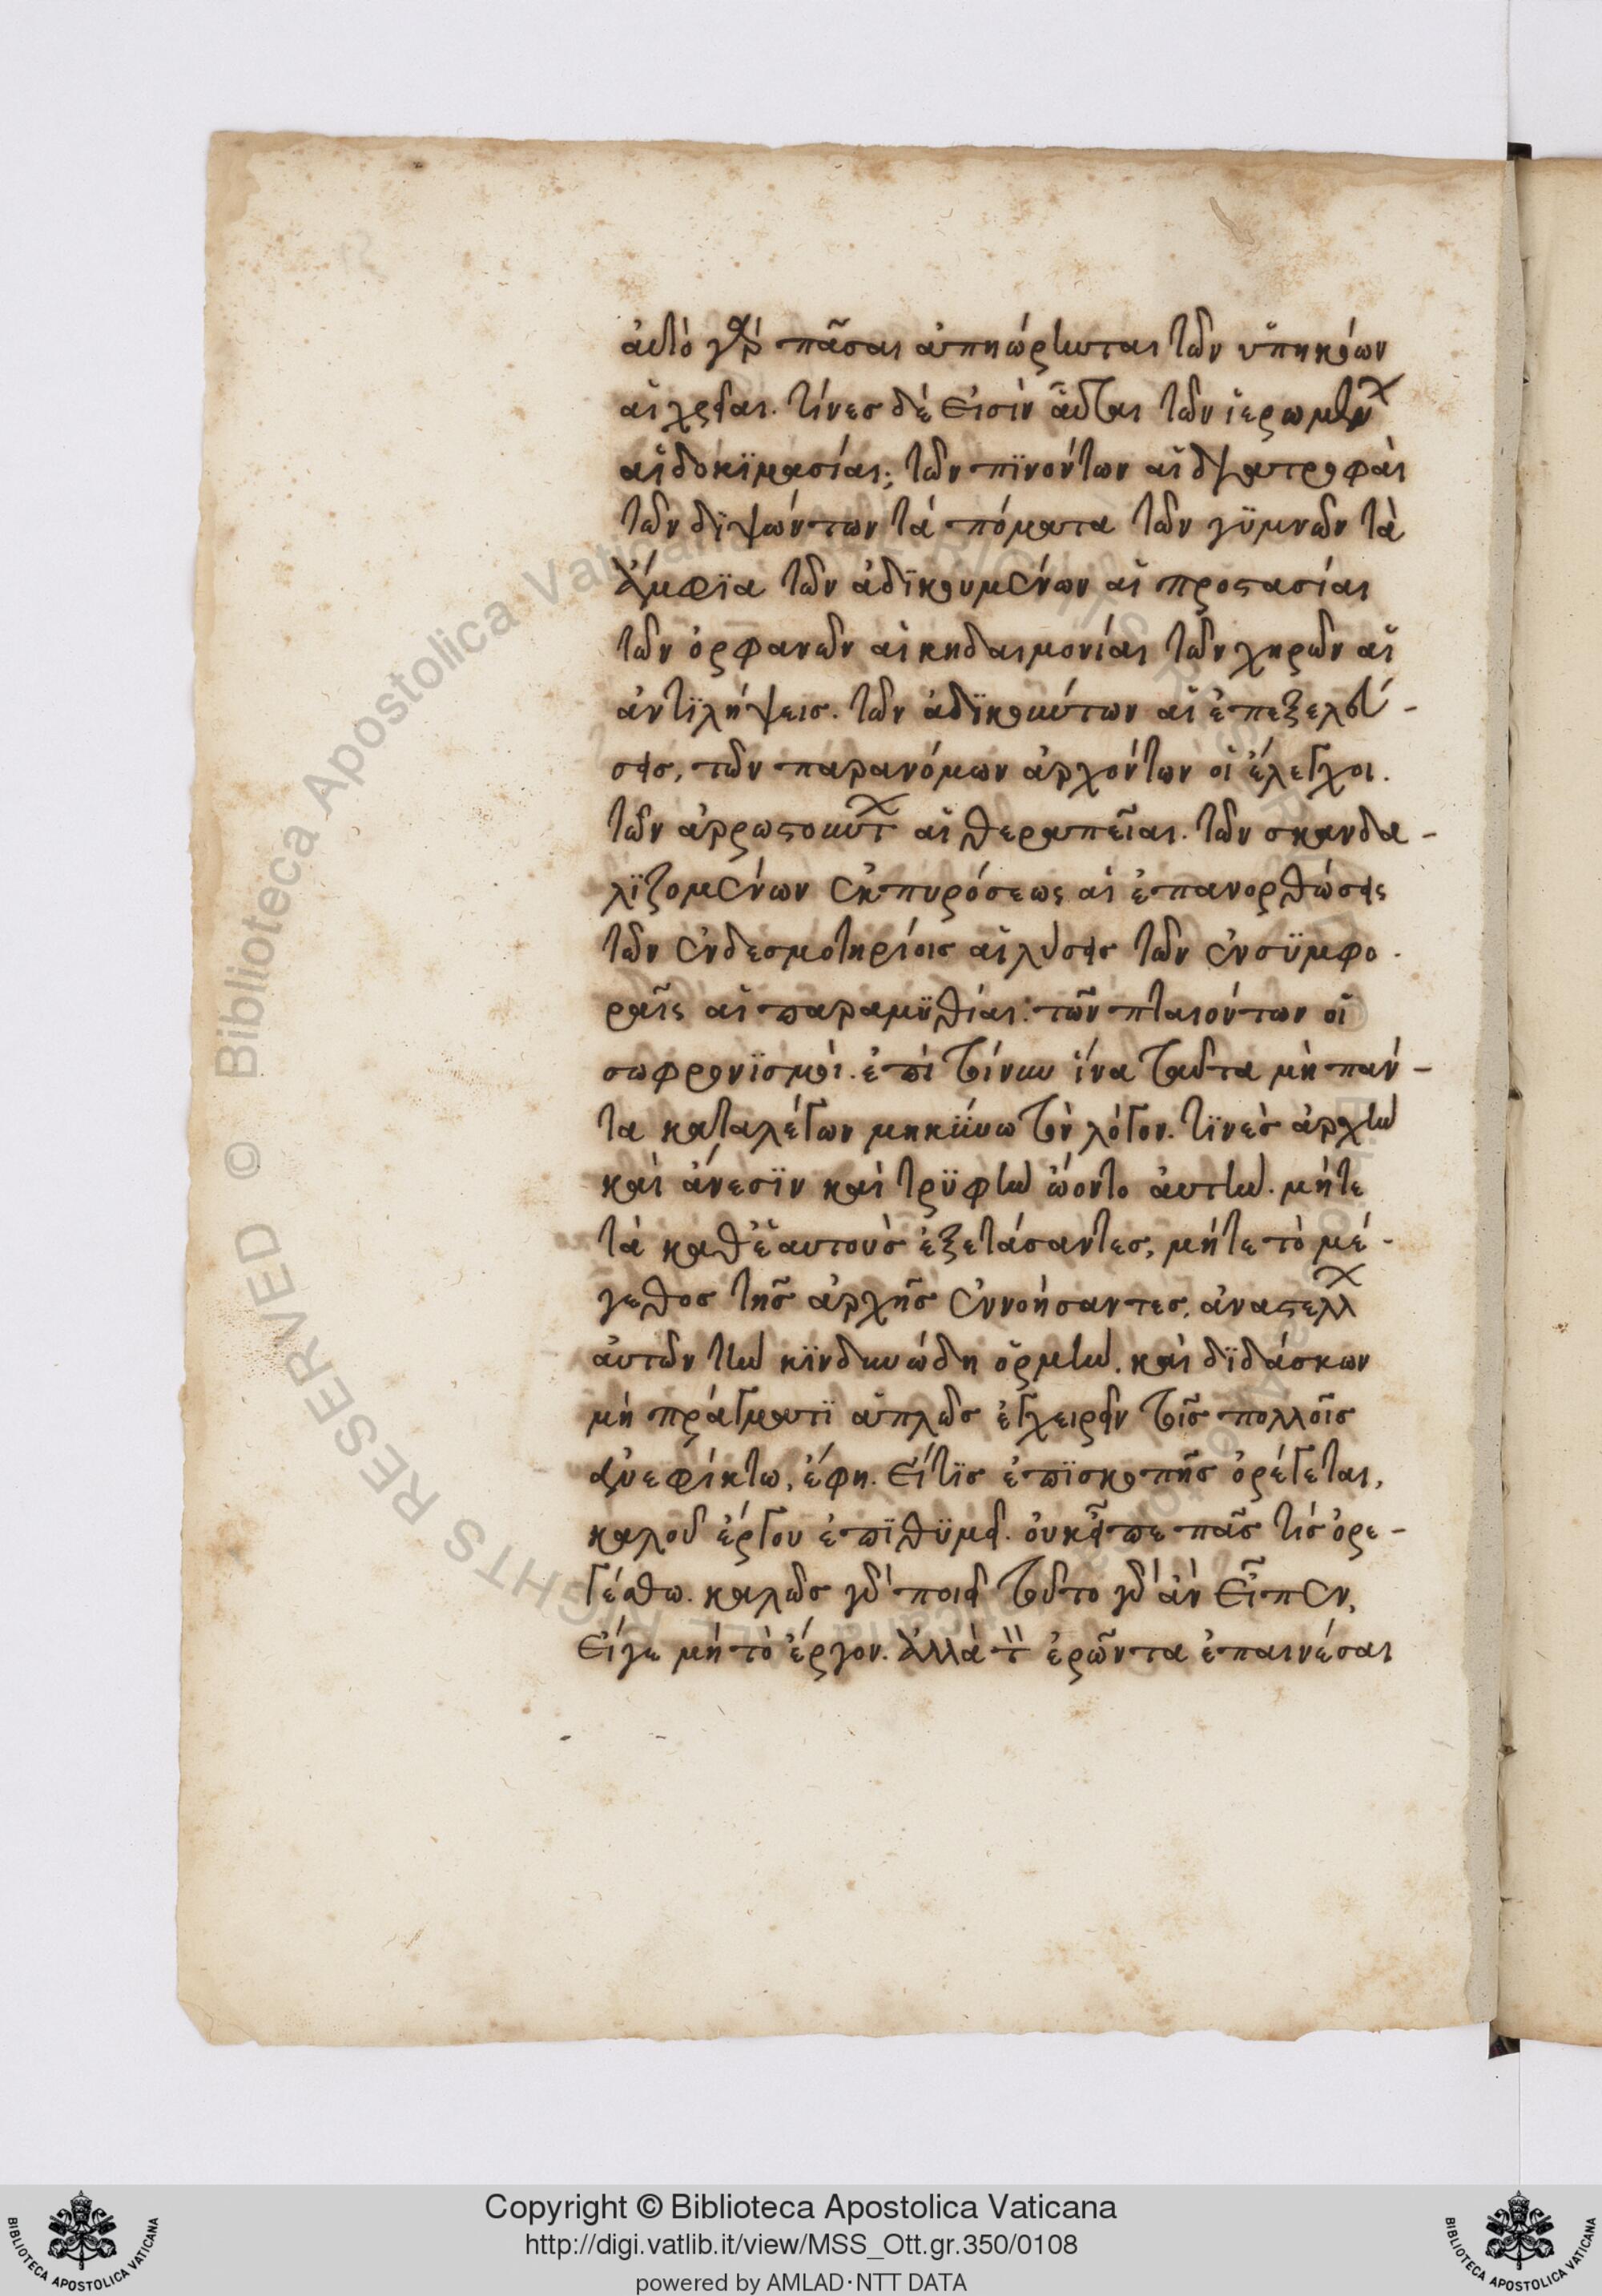 αὐτὸ γὰρ πᾶσαι ἀπηώρηνται τῶν ὑπηκόων
αἱ χρεῖαι. τίνες δὲ εἰσὶν αὗται τῶν ἱερωμένων
αἱ δοκϊμασίαι; τῶν πϊνόντων αἱ διατροφαὶ
τῶν δϊψώντων τὰ πόματα τῶν γϋμνῶν τὰ
ἀμφϊα τῶν ἀδϊκουμένων αἱ προστασίαι
τῶν ὀρφανῶν αἱ κηδαιμονίαι τῶν χηρῶν αἱ
ἀντϊλήψεισ. τῶν ἀδϊκούντων αἱ ἐπεξελεύ-
σεισ, τῶν παρανόμων ἀρχόντων οἱ ἔλεγχοι.
τῶν ἀρρωστούντων αἱ θεραπεῖαι. τῶν σκανδα-
λϊζομένων ἐκπυρόσεως αἱ ἐπανορθώσεις
τῶν ἐνδεσμοτηρίοις αἱ λύσεισ τῶν ἐνσϋμφο-
ραῖς αἱ παραμϋθίαι: τῶν πταιόντων οἱ
σωφρονϊσμοὶ. ἐπὶ τίνων ἵνα ταῦτα μὴ πάν-
τα καταλέγων μηκύνω τὸν λόγον. τϊνὲσ ἀρχὴν
καὶ ἄνεσϊν καὶ τρϋφὴν ὤοντο αὐτὴν. μήτε
τὰ καθ ἑαυτοὺσ ἐξετάσαντεσ, μήτε τὸ μέ-
γεθοσ τῆσ ἀρχῆσ ἐννοήσαντεσ. ἀναστέλλων
αὐτῶν τὴν κϊνδυνώδη ὁρμὴν. καὶ δϊδάσκων
μὴ πράγματϊ ἁπλῶσ ἐγχειρεῖν τοῖσ πολλοῖσ
ἀνεφίκτω, ἔφη. εἴτϊσ ἐπϊσκοπῆσ ὀρέγεται,
καλοῦ ἔργου ἐπϊθϋμεῖ. οὐκ εἶπε πᾶσ τίσ ὀρε-
γέσθω. καλῶσ γὰρ ποιεῖ τοῦτο γὰρ ἂν εἶπεν,
εἴγε μὴ τὸ ἔργον. ἀλλὰ τὸν ἐρῶντα ἐπαινέσαι
Copyright © Biblioteca Apostolica Vaticana
http://digi.vatlib.it/view/MSS_Ott.gr.350/0108
powered by AMLAD·NTT DATA
BIBLIOTECA APOSTOLICA VATICANA
BIBLIOTECA APOSTOLICA VATICANA